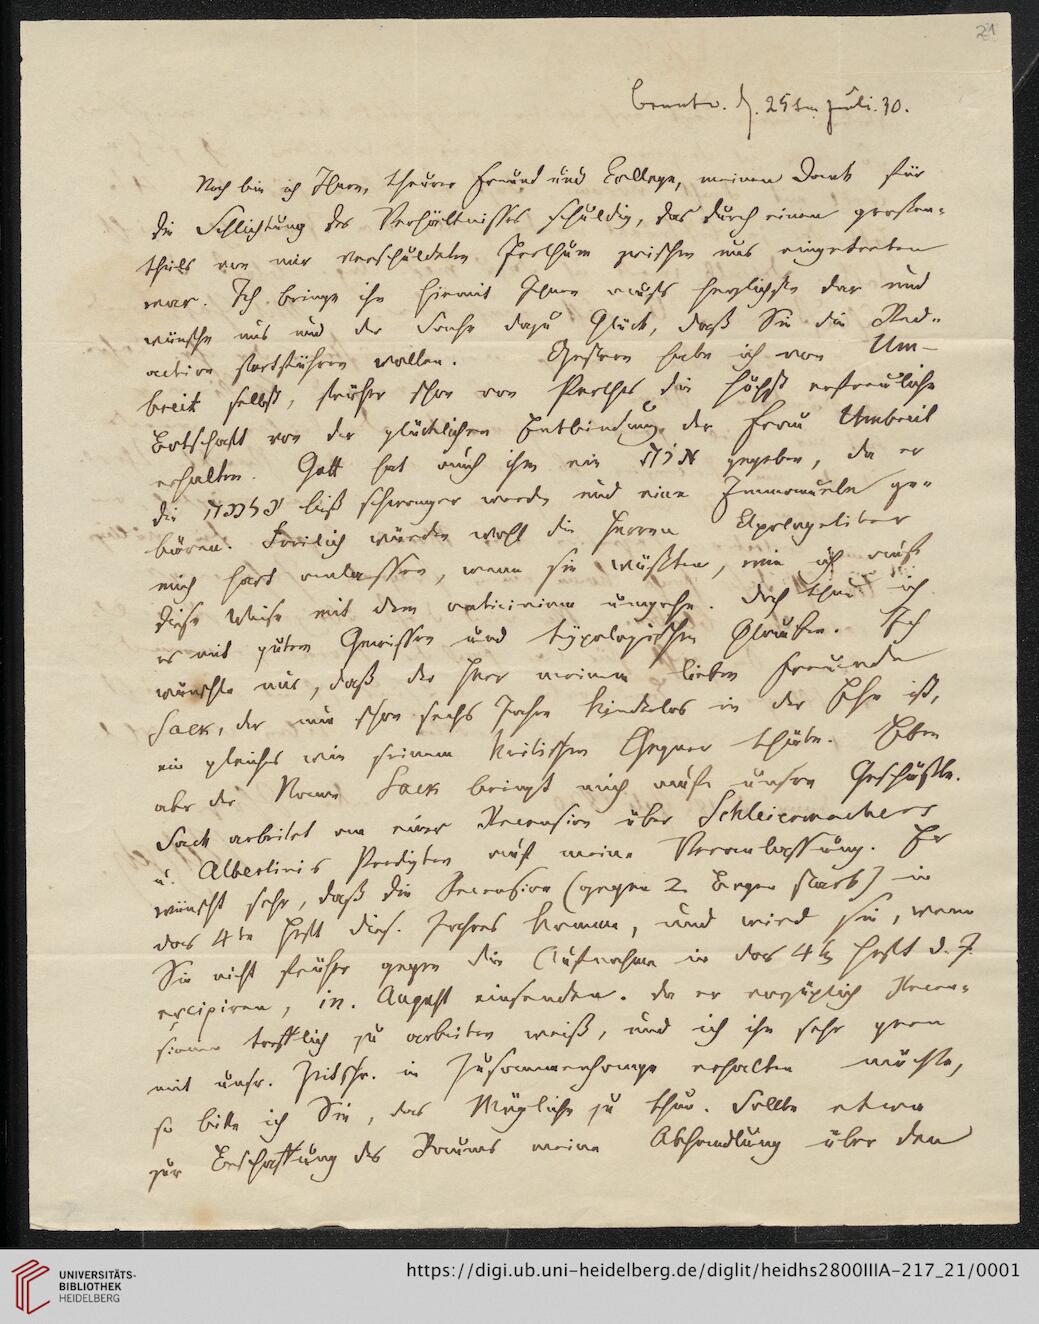 21
d. 25ten Juli. 30.
Noch bin ich Ihnen, theurer Freund und College, meinen Dank für
die Schlichtung des Verhältnisses schuldig, das durch einen großen-
theils von mir verschuldeten Irrthum zwischen uns eingetreten
war. Ich bringe ihn hiermit Ihnen aufs herzlichste dar und
wünsche uns und der Sache dazu Glück, daß Sie die Red-
action fortführen wollen. Gestern habe ich von Um-
breit selbst, früher schon von Perthes die höchst erfreuliche
Botschaft von der glücklichen Entbindung der Frau Umbreit
erhalten. Gott hat auch ihm ein אות gegeben, da er
die ließ schwanger werden und eine Immanuela ge-
bären. Freilich würden wohl die Herren
mich hart anlassen, wenn sie wüßten, wie ich auf
diese Weise mit dem vaticinium umgehe. Doch thue ich
es mit gutem Gewissen und typologischem Glauben. Ich
wünschte nur, daß der Herr meinem lieben Freunde
Sack, der nun schon sechs Jahre kinderlos in der Ehe ist,
ein gleiches wie seinem kritischen Gegner thäte. Eben
aber der Name Sack bringt mich auf unsre Geschäfte.
Sack arbeitet an einer Recension über Schleiermachers
u. Albertini's Predigten auf meine Veranlassung. Er
wünscht sehr, daß die Recension (gegen 2 Bogen stark) in
das 4te Heft dies. Jahres komme, und wird sie, wenn
Sie nicht früher gegen die Aufnahme in das 4te Heft d. J.
excipiren, in August einsenden. Da er vorzüglich Recen-
sionen trefflich zu arbeiten weiß, und ich ihn sehr gern
mit unsr. Zeitschr. in Zusammenhange erhalten möchte,
so bitte ich Sie, das Mögliche zu thun. Sollte etwa
zur Beschaffung des Raums meine Abhandlung über den
UNIVERSITÄTS-
BIBLIOTHEK
HEIDELBERG
https://digi.ub.uni-heidelberg.de/diglit/heidhs2800IIIA-217_21/0001